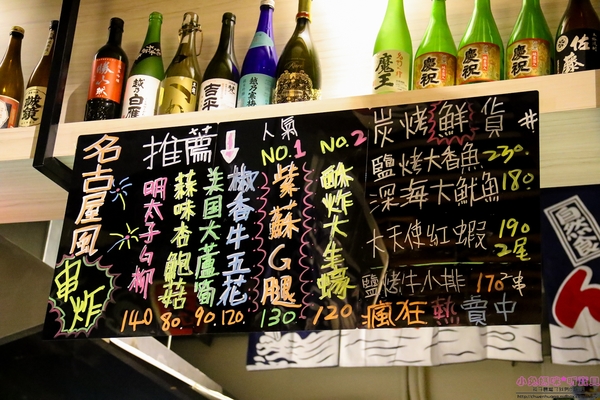 勝
白雁
吉平
魔王
慶祝
慶祝
慶祝
佐藤
名古屋風
串炸
推薦
↓
明太子G柳 140
蒜味杏鮑菇 80.
美国大蘆筍 90.
椒香牛五花 120.
人氣
NO.1 NO.2
紫蘇G腿 130
酥炸大生蠔 120
炭烤鮮貨 #
鹽烤大香魚 230.
深海大魷魚 180
大天使紅蝦 190 2尾
鹽烤牛小排 170串
瘋狂熱賣中
自然食
ん